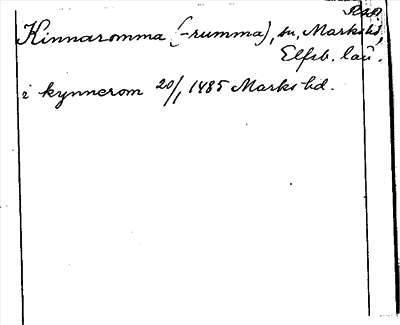 Kinnaromma (-rumma), sn, Marks hd,
Elfsb. län.
i kynnerom 20/1 1485 Marks hd.